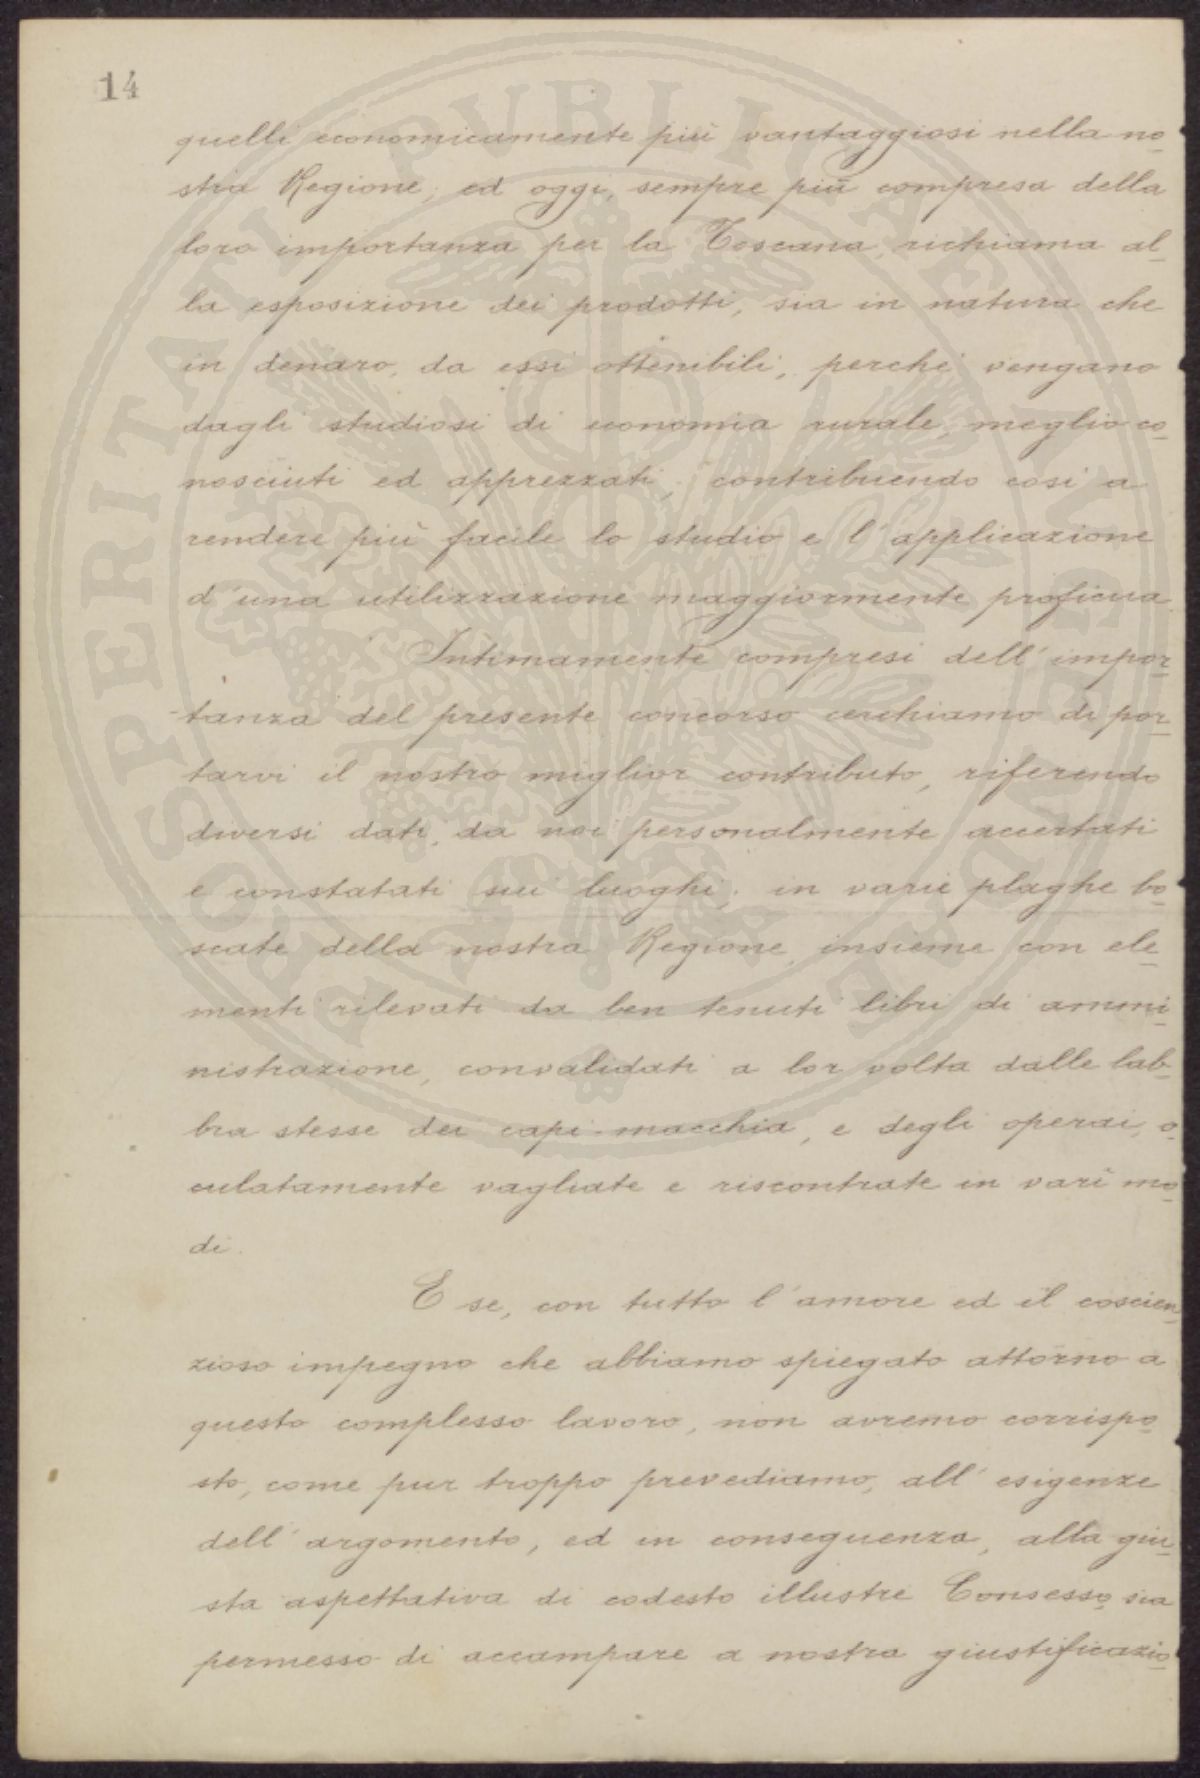 14
quelli economicamente più vantaggiosi nella no
stra Regione; ed oggi, sempre più compresa della
loro importanza per la Toscana, richiama al
la esposizione dei prodotti, sia in natura che
in denaro, da essi ottenibili, perché vengano
dagli studiosi di economia rurale, meglio co
nosciuti ed apprezzati, contribuendo così a
rendere più facile lo studio e l'applicazione
d'una utilizzazione maggiormente proficua.
Intimamente compresi dell'impor
tanza del presente concorso cerchiamo di por
tarvi il nostro miglior contributo, riferendo
diversi dati, da noi personalmente accertati
e constatati sui luoghi, in varie plaghe bo
scate della nostra Regione, insieme con ele
menti rilevati da ben tenuti libri di ammi
nistrazione, convalidati a lor volta dalle lab
bra stesse dei capi-macchia, e degli operai, o
culatamente vagliate e riscontrate in varî mo
di.
E se, con tutto l'amore ed il coscien
zioso impegno che abbiamo spiegato attorno a
questo complesso lavoro, non avremo corrispo
sto, come pur troppo prevediamo, all'esigenze
dell'argomento, ed in conseguenza, alla giu
sta aspettativa di codesto illustre Consesso, sia
permesso di accampare a nostra giustificazio
PROSPERITATI PVBLICAE AVGENDAE